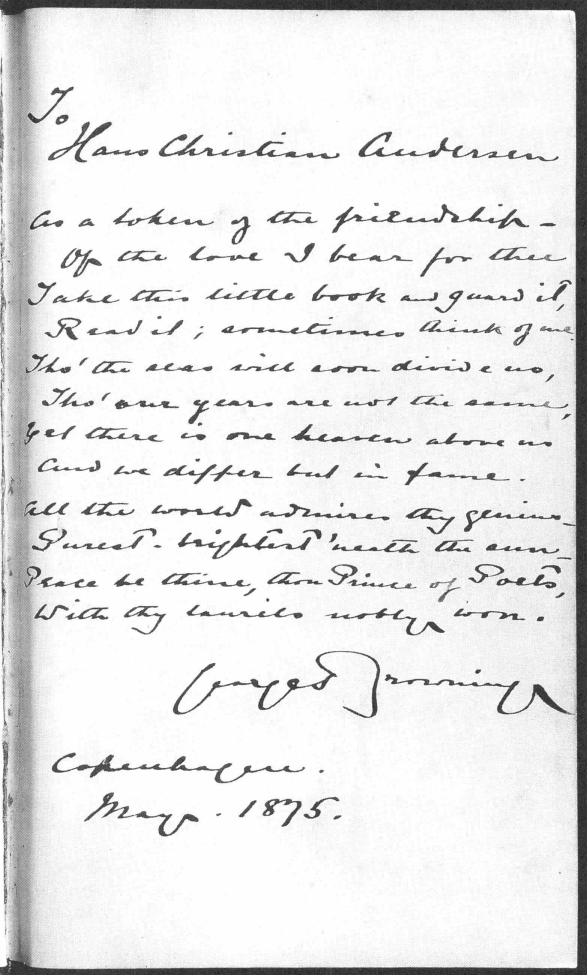 To
Hans Christian Andersen
As a token of the friendship -
Of the love I bear for thee
Take this little book and guard it,
Read it; sometimes think of me.
Tho' the seas will soon divide us,
Tho' our years are not the same,
Yet there is one heaven above us
And we differ but in fame.
All the world admires thy genius -
Purest - brightest 'neath the sun -
Peace be thine, thou Prince of Poets,
With thy laurels nobly won.
George S Browning
Copenhagen.
May. 1875.